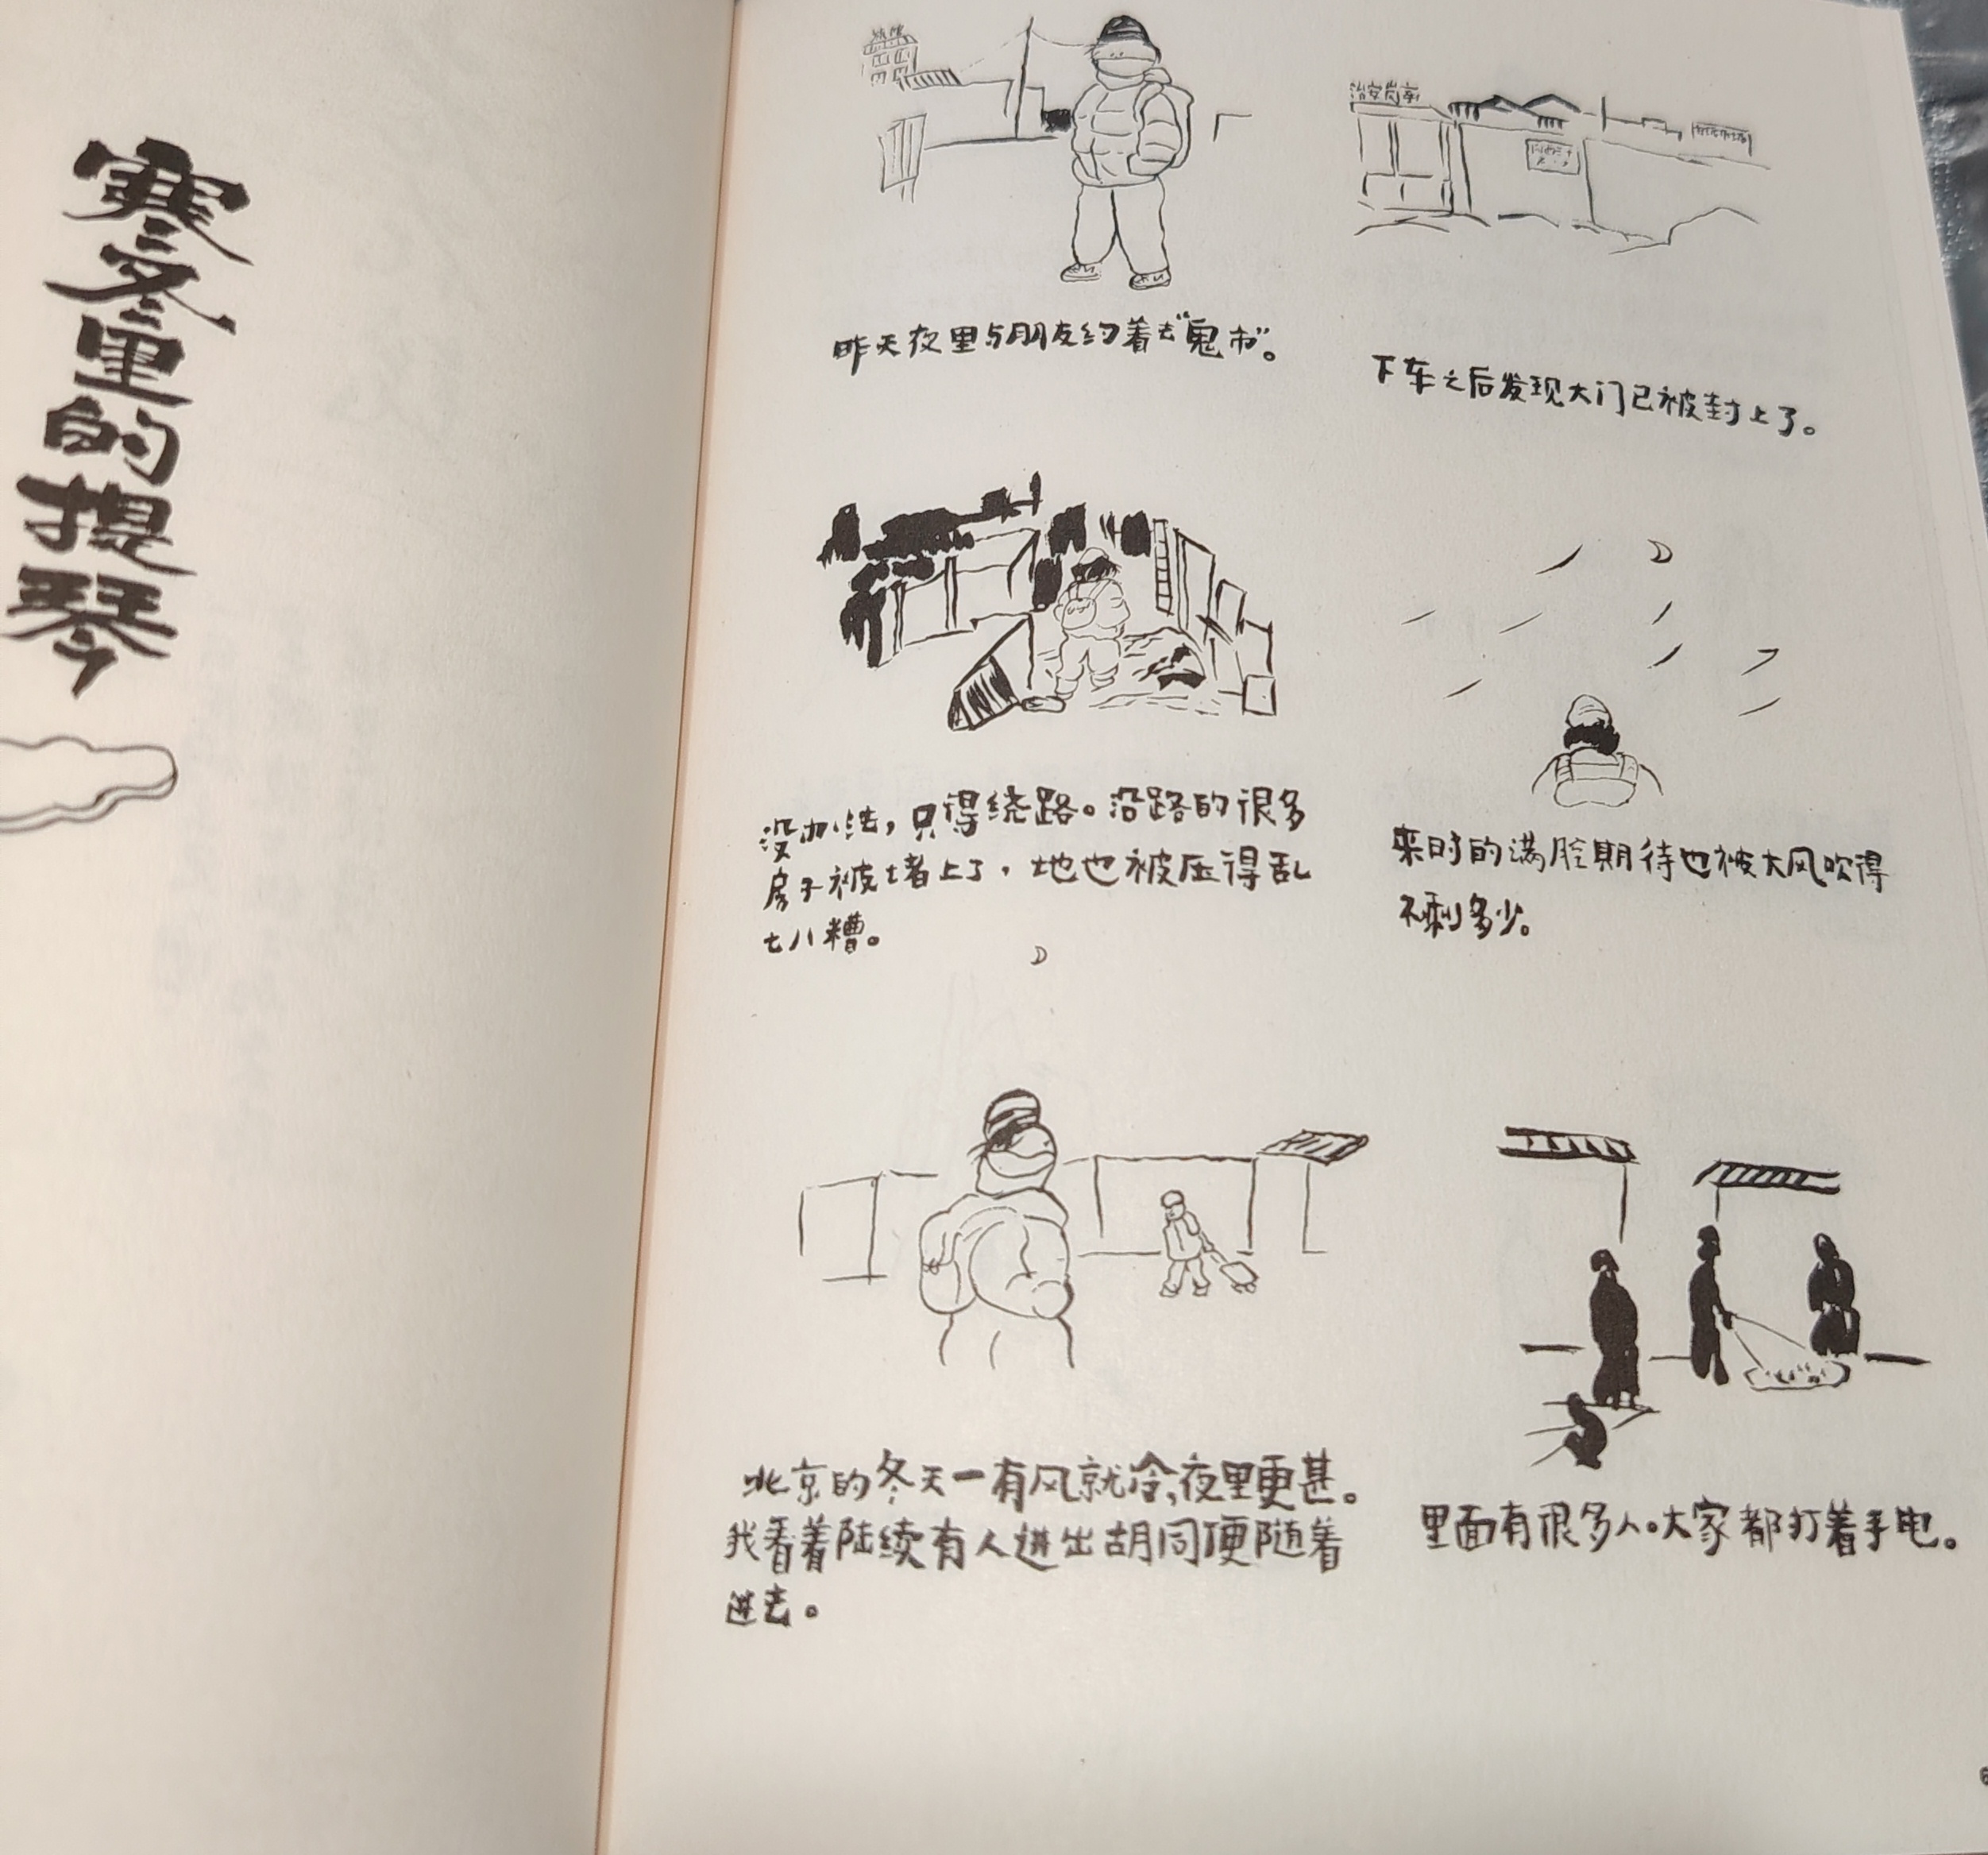 寒冬里的提琴
治安岗亭
昨天夜里与朋友约着去“鬼市”。
下车之后发现大门已被封上了。
没办法，只得绕路。沿路的很多
房子被堵上了，地也被压得乱
七八糟。
来时的满脸期待也被大风吹得
不剩多少。
北京的冬天一有风就冷，夜里更甚。
我看着陆续有人进出胡同便随着
进去。
里面有很多人。大家都打着手电。